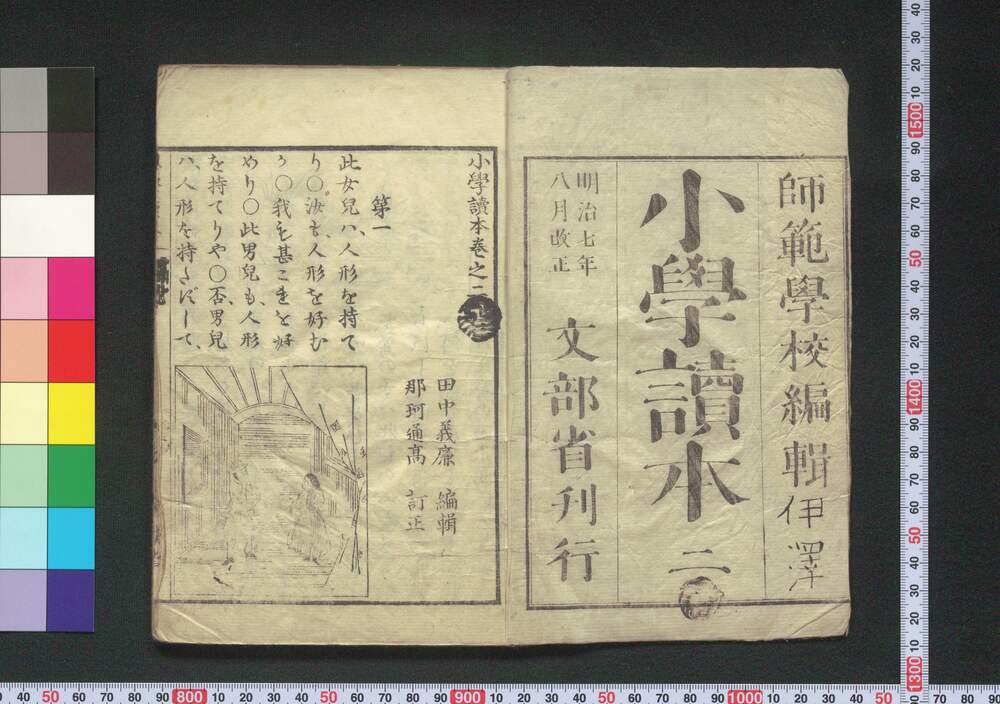 師範學校編輯
伊澤
小學讀本 二
明治七年
八月改正
文部省刊行
小學讀本巻之二
田中義廉 編輯
那珂通高 訂正
第一
此女兒ハ、人形を持て
り○汝も、人形を好む
か○我も甚これを好
めり○此男兒も、人形
を持てりや○否、男兒
ハ、人形を持たずして、